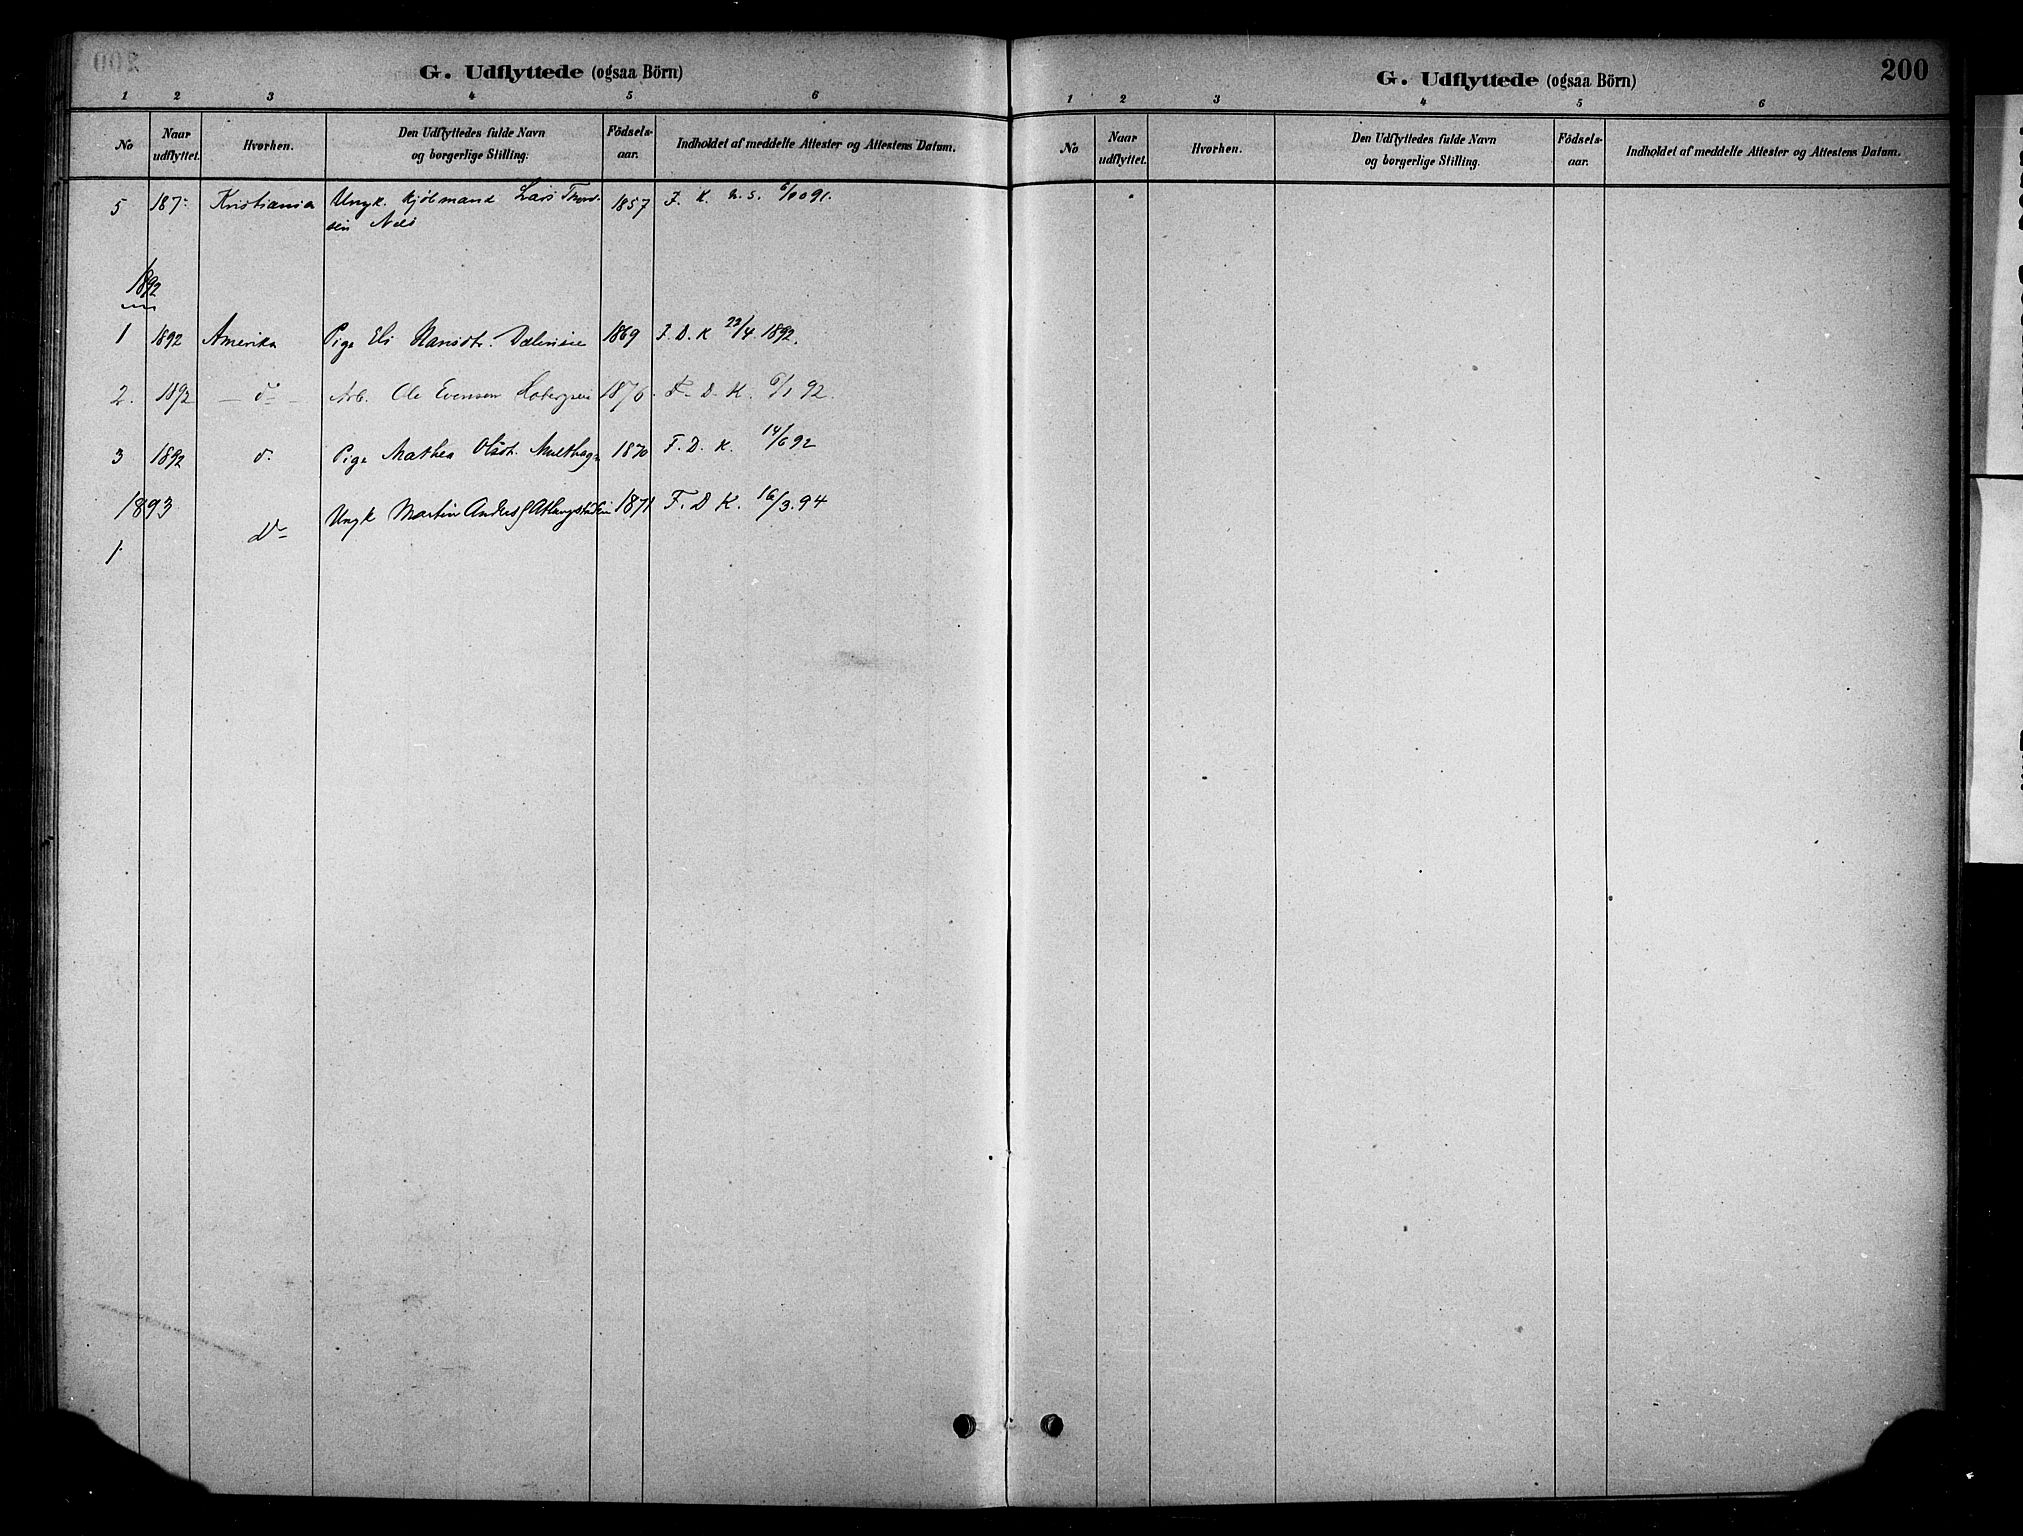 G. Udflyttede (ogsaa Börn)
1 2 3 4 5 6
No
Naar udflyttet.
Hvorhen.
Den Udflyttedes fulde Navn
og borgerlige Stilling.
Födsels-
aar.
Indholdet af meddelte Attester og Attestens Datum.
5 187 Kristiania Ungk. Kjöbmand Lars Thord- 1857 F. K. 6/10 91.
sen
1892
1 1892 Amerika Pige Eli Hansdtr. 1869 F. D. K 22/4 1892.
2. 1892 — do — Arb. Ole Evensen 1876. F. D. K. 6/1 92.
3 1892 do. Pige Mathea Olsdt. 1870 F. D. K. 14/6 92
1893 Ungk Martin Anders 1871 F. D K. 16/3. 94
1. Do
G. Udflyttede (ogsaa Börn)
200
1 2 3 4 5 6
No
Naar udflyttet.
Hvorhen.
Den Udflyttedes fulde Navn
og borgerlige Stilling.
Födsels-
aar.
Indholdet af meddelte Attester og Attestens Datum.